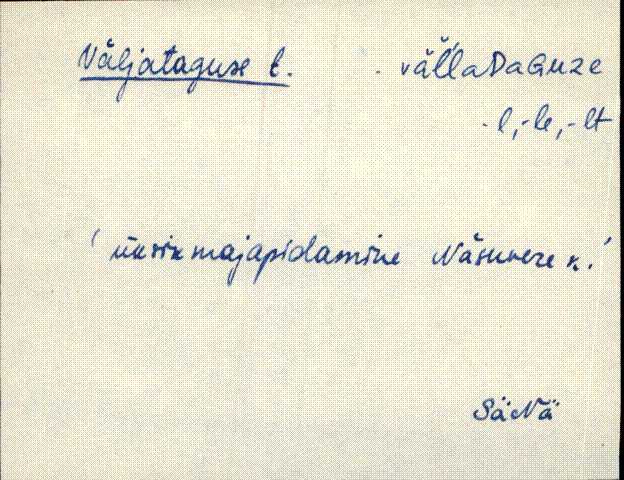 Väljataguse t. väĺlaDaGuze
-l, -le, -lt
'üksikmajapidamine Näsuvere k.'
SäNä